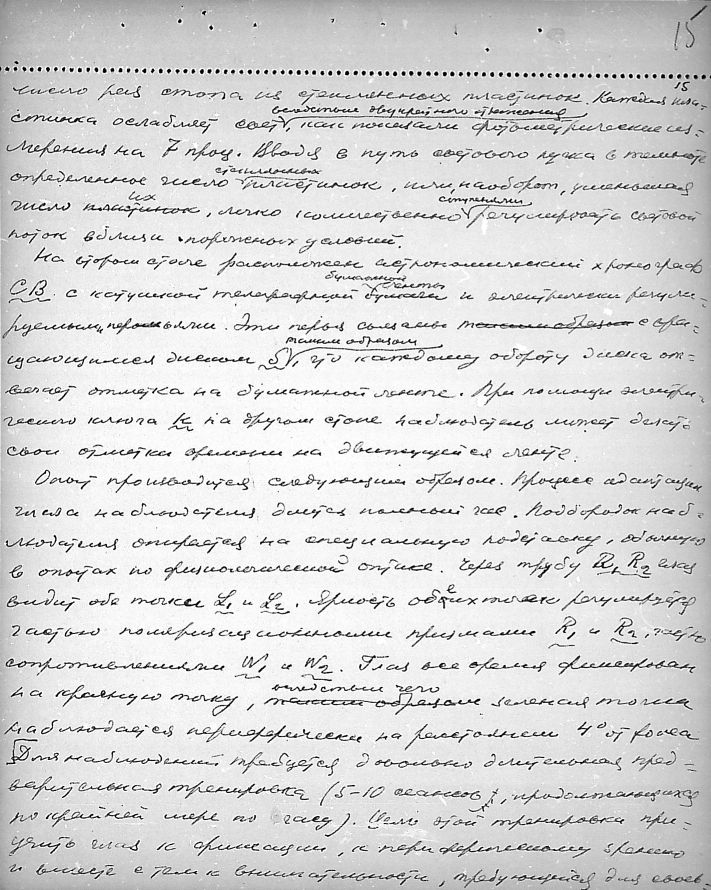 15
15
число раз стопа из стеклянных пластинок. Каждая пла-
вследствие двукратного отражения
стинка ослабляет свет, как показали фотометрические из-
мерения на 7 проц. Вводя в путь светового пучка в темноте
стеклянных
определенное число пластинок, или, наоборот, уменьшая
их ступенями
число пластинок, легко количественно регулировать световой
поток вблизи пороговых условий.
На втором столе расположен астрономический хронограф
бумажной ленты
СВ с катушкой телеграфной бумаги и электрически регули-
руемыми перьями. Эти перья связаны таким образом с вра-
таким образом
щающимся диском S, что каждому обороту диска от-
вечает отметка на бумажной ленте. При помощи электри-
ческого ключа K на другом столе наблюдатель может делать
свои отметки времени на движущейся ленте.
Опыт производится следующим образом. Процесс адаптации
глаза наблюдателя длится полный час. Подбородок наб-
людателя опирается на специальную подставку, обычную
в опытах по физиологической оптике. Через трубу R1 R2 глаз
видит обе точки L1 и L2. Яркость обеих точек регулируется
частью поляризационными призмами R1 и R2, частью
сопротивлениями W1 и W2. Глаз все время фиксирован
вследствие чего
на красную точку, таким образом зеленая точка
наблюдается периферически на расстоянии 4° от fovea
Для наблюдений требуется довольно длительная пред-
варительная тренировка (5-10 сеансов, продолжающихся
по крайней мере по часу). Цель этой тренировки при-
учить глаз к фиксации, к периферическому зрению
и вместе с тем к внимательности, требующейся для своев-